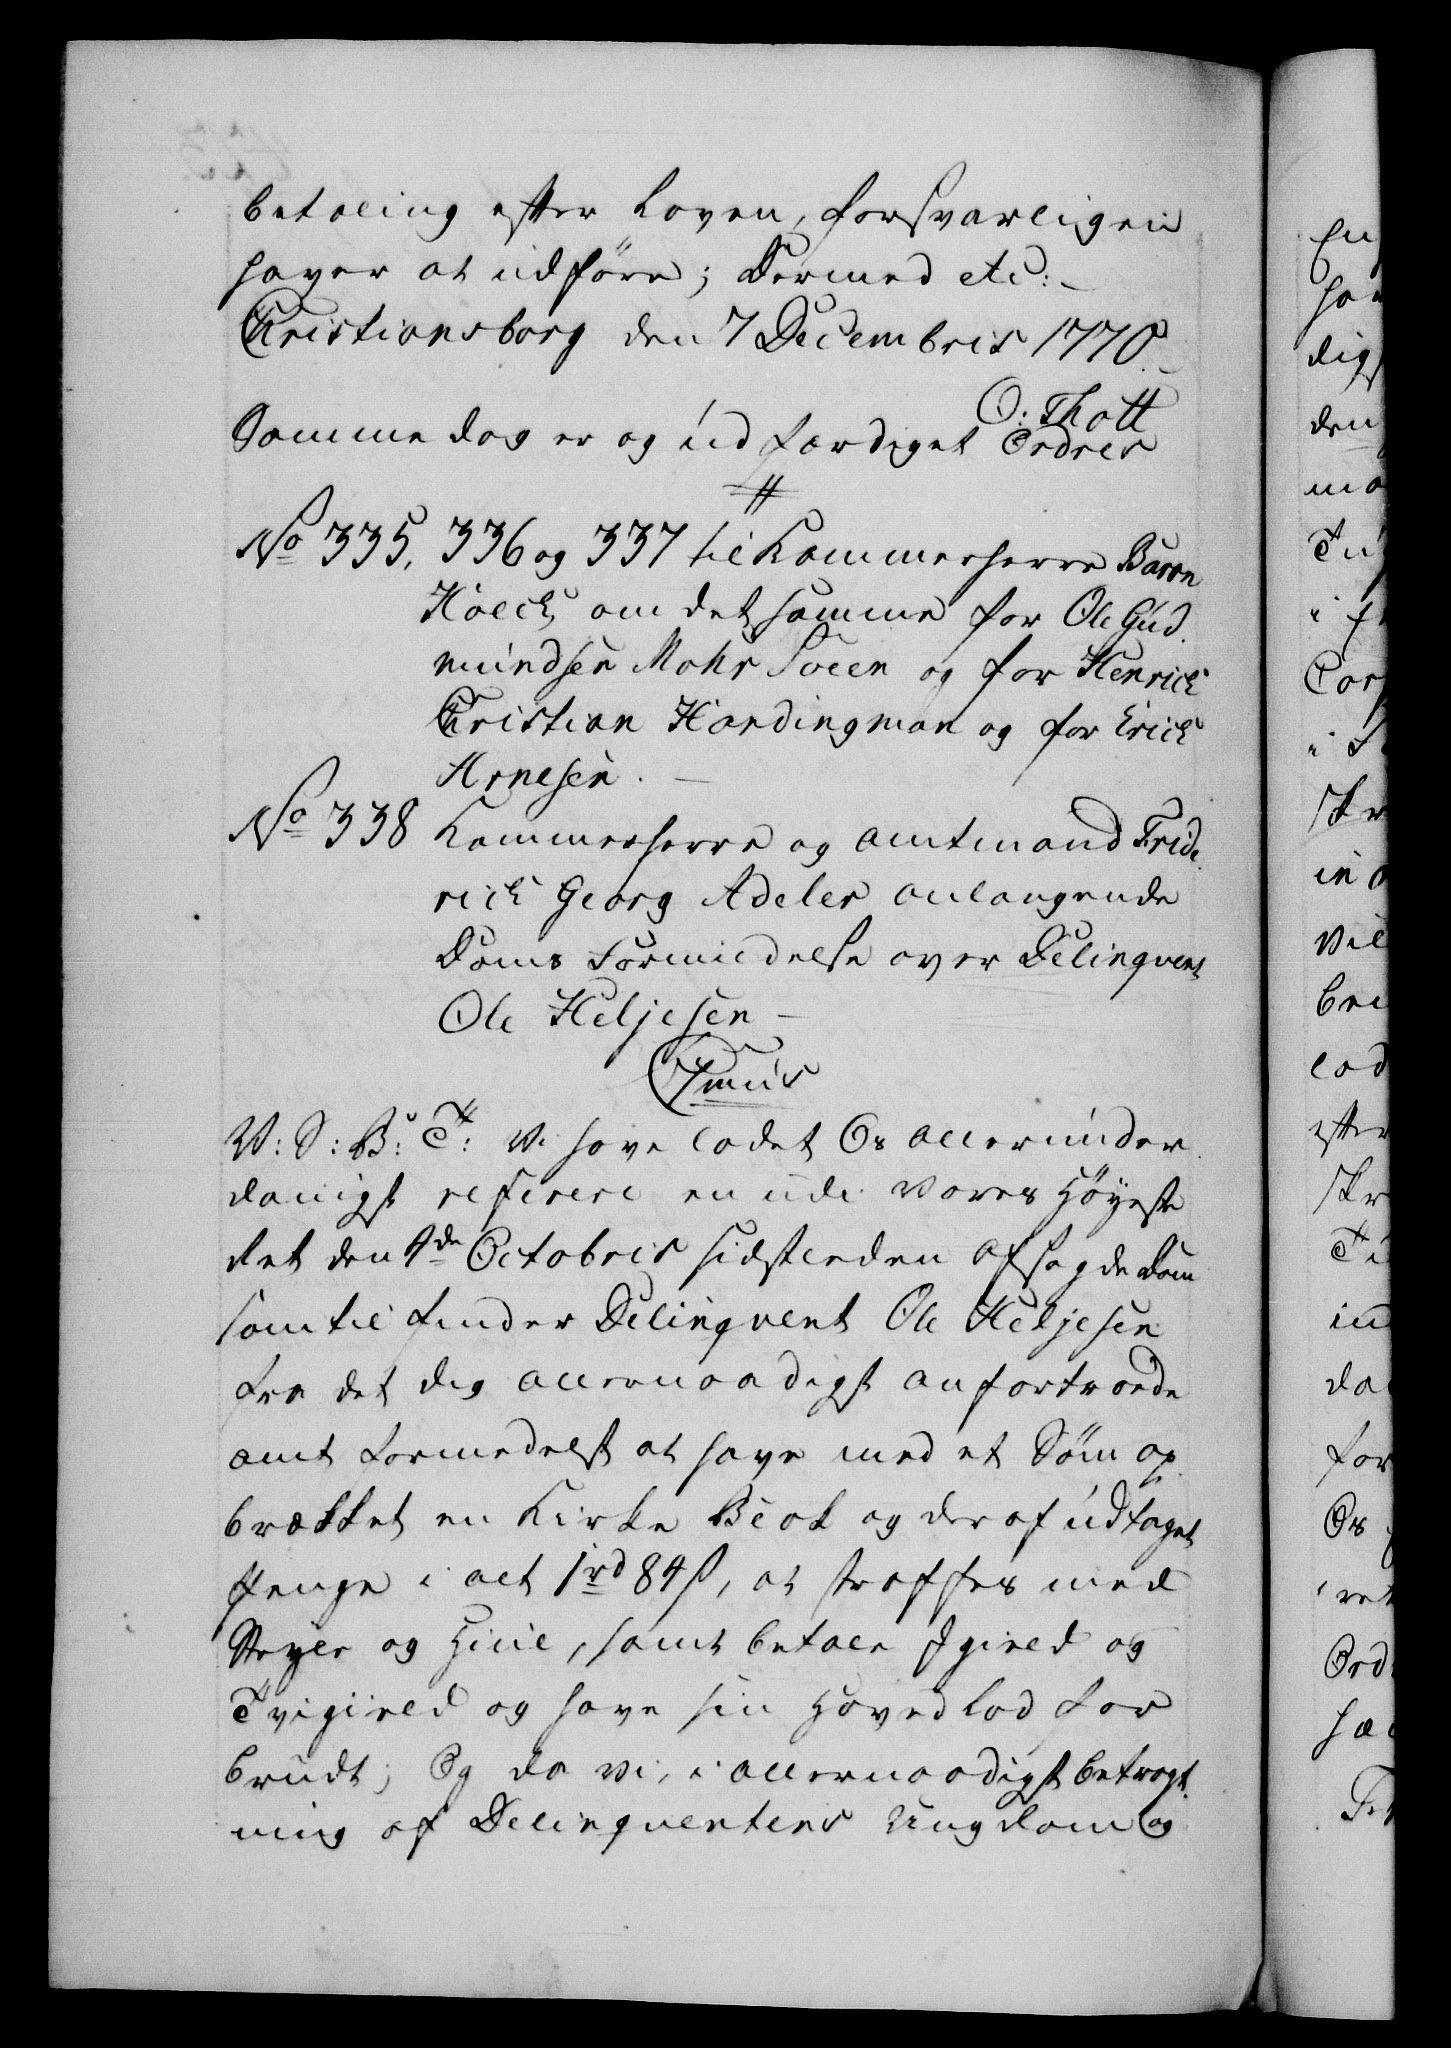 betaling efter Loven, forsvarligen
haver at udföre; Dermed etc:
Christiansborg den 7 Decembris 1770.
O: Thott
Samme dag er og udfærdiget Ordres
No 335, 336 og 337 til Kammerherre Baron
Holck, om det samme for Ole Gud
mundsen Mohr Sveen og for Henrich
Christian Hardingman og for Erich
Arnesen.
No 338 Kammerherre og Amtmand Fride
rich Georg Adeler anlangende
Doms Formildelse over Delinqvent
Ole Heljesen
C 7mus
V: S: B: T: Vi have ladet Os allerunder
danigst referere en udi Vores Höyeste
Ret den 4de Octobris sidstleden afsagde Dom
som tilfinder Delinqvent Ole Heljesen
fra det dig allernaadigst anfortroede
Amt formedelst at have med et Söm op
brækket en Kirke Blok og deraf udtaget
Penge i alt 1rd 84s, at straffes med
Steyle og Hiul, samt betale Igield og
Tvigield og have sin Hovedlod for
brudt; Og da Vi, i allernaadigst betragt
ning af Delinqventens Ungdom og